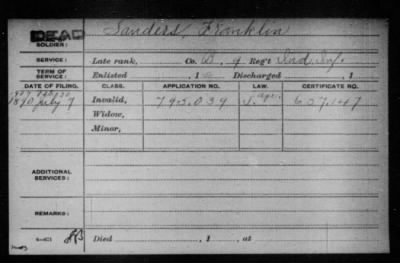 DEAD Sanders, Franklin
SOLDIER:
SERVICE: Late rank, Co. B, 9 Reg't Ind. Inf.
TERM OF SERVICE: Enlisted , 1 Discharged , 1
DATE OF FILING. CLASS. APPLICATION NO. LAW. CERTIFICATE NO.
1890 July 7 Invalid, 795,039 657,147
Widow,
Minor,
ADDITIONAL SERVICES:
REMARKS:
Died , 1 , at